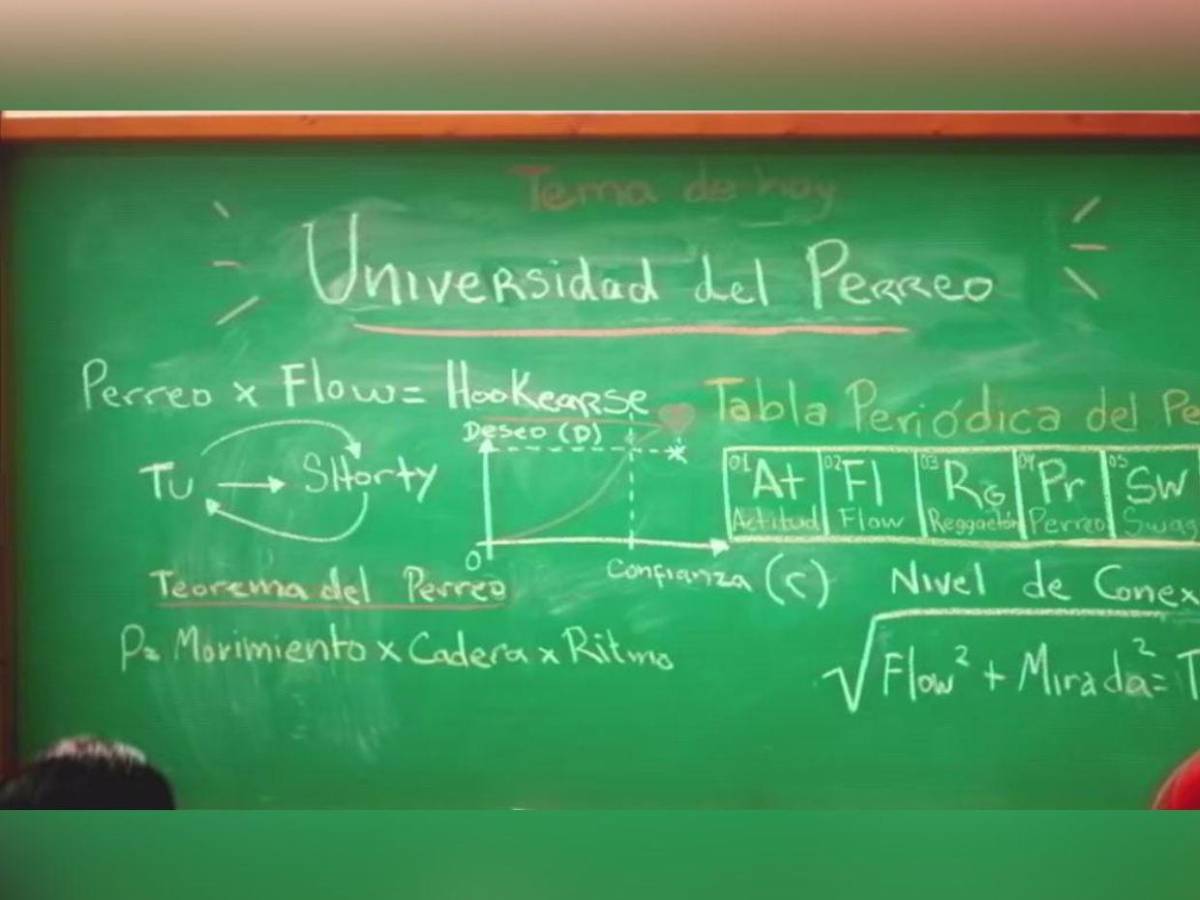 Tema de hoy
Universidad del Perreo
Perreo x Flow = Hookearse
Tu → SHorty
Deseo (D)
0
Confianza (C)
Teorema del Perreo
P= Movimiento x Cadera x Ritmo
Tabla Periódica del Pe
01 At Actitud
02 Fl Flow
03 RG Reggaetón
04 Pr Perreo
05 Sw Swag
Nivel de Conex
√Flow² + Mirada² = T